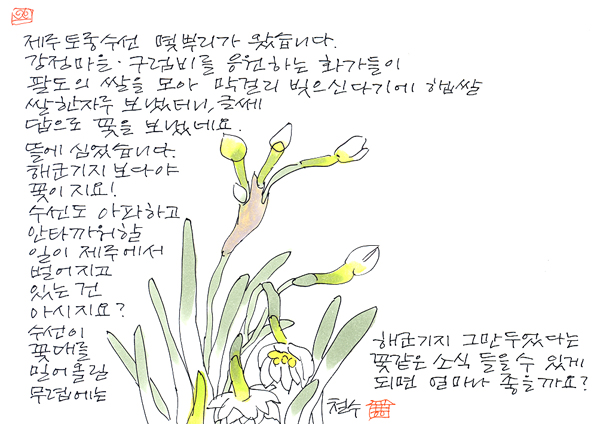 제주 토종수선 몇뿌리가 왔습니다.
강정마을·구럼비를 응원하는 화가들이
팔도의 쌀을 모아 막걸리 빚으신다기에 햅쌀
쌀한자루 보냈더니, 글쎄
답으로 꽃을 보냈네요.
뜰에 심었습니다.
해군기지 보다야
꽃이지요!
수선도 아파하고
안타까워할
일이 제주에서
벌어지고
있는 건
아시지요?
수선이
꽃대를
밀어올릴
무렵에는
해군기지 그만두었다는
꽃같은 소식 들을 수 있게
되면 얼마나 좋을까요?
철수